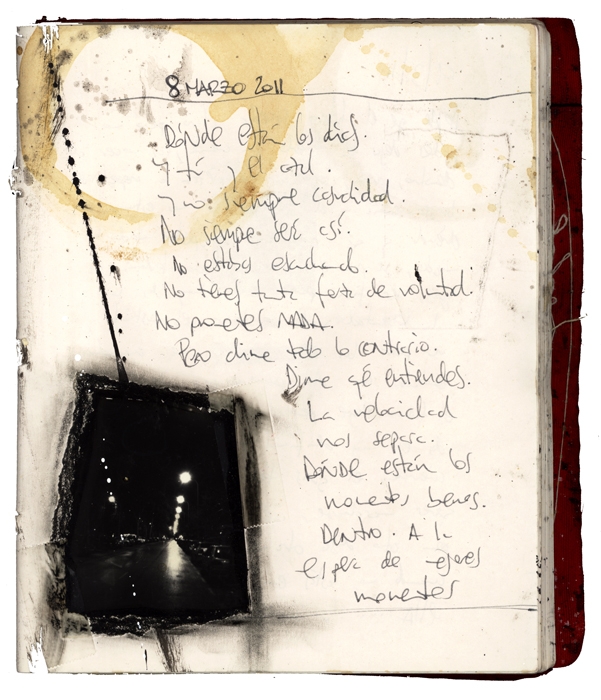 8 MARZO 2011
DÓNDE están los días.
Y tú y el
y no siempre casualidad.
No siempre será así.
No estabas escuchando.
No tienes tanta fuerza de voluntad.
No prometes NADA.
Pero dime todo lo contrario.
Dime qé entiendes.
La velocidad
nos separa.
DÓNDE están los
momentos buenos.
Dentro. A la
espera de mejores
momentos